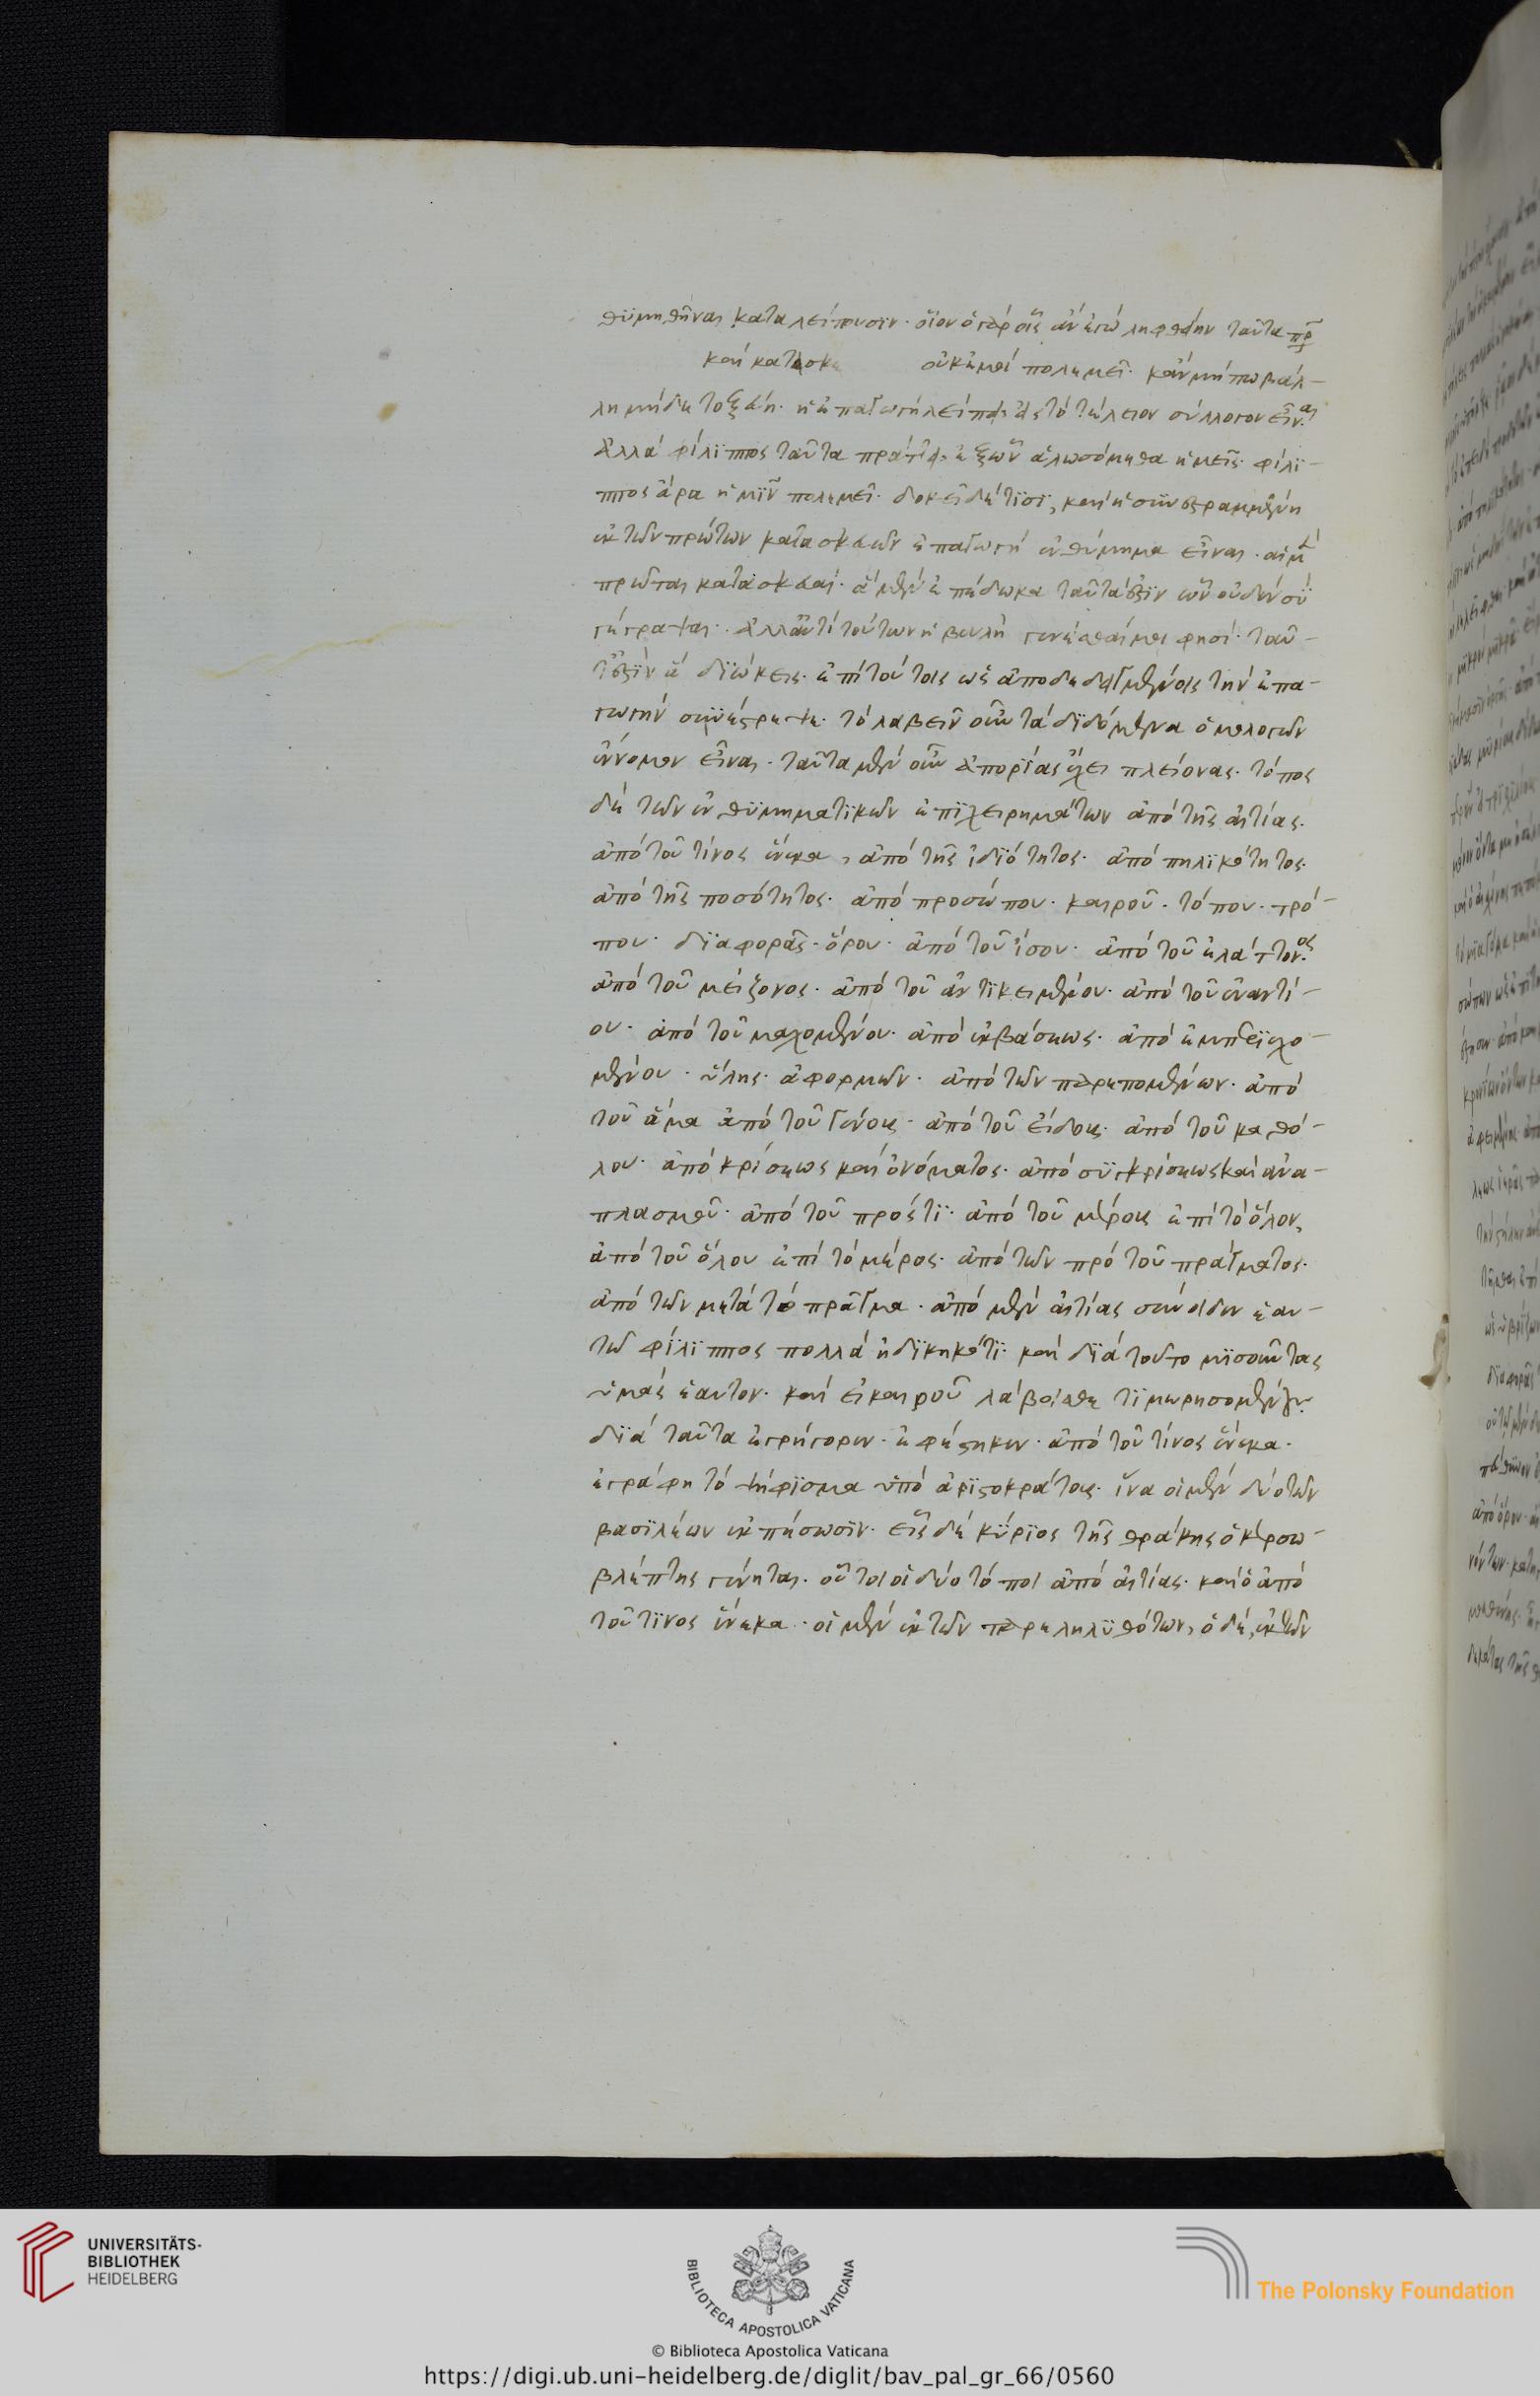 θϋμηθῆναι καταλείπουσϊν· οἷον ὁ γὰρ οἷς ἂν ἐγὼ ληφθείην ταῦτα πρ
καὶ κατασκε οὗτος ἐμοὶ πολεμεῖ· κἂν μήπω βάλ-
λη μηδὲ τοξεύη· ἡ ἐπαγωγὴ λείπει εἰς τὸ τέλειον σύλλογον εἶναι
ἀλλὰ φίλϊππος ταῦτα πράττει ἐξ ὧν ἁλωσόμεθα ἡμεῖς· φίλϊ-
ππος ἄρα ἡμῖν πολεμεῖ· δοκεῖ δέ τισϊ, καὶ ἡ συγγεγραμμένη
ἐκ τῶν πρώτων κατασκευῶν ἐπαγωγὴ ἐνθύμημα εἶναι· αἱ μὲν
πρῶται κατασκευαί· ἃ μὲν ἐπέδωκα ταῦτά ἐστιν ὧν οὐδὲν σὺ
γέγραψαι· ἀλλ' ἀντὶ τούτων ἡ βουλὴ γενέσθαι μοι φησί· ταῦ-
τ' ἐστὶν ἃ διώκεις· ἐπὶ τούτοις ὡς ἀποδεδειγμένοις τὴν ἐπα-
γωγὴν συνέγραψε· τὸ λαβεῖν οὖν τὰ διδόμενα ὁμολογῶν
ἔννομον εἶναι· ταῦτα μὲν οὖν ἀπορΐας ἔχει πλείονας· τόπος
δὲ τῶν ἐνθϋμηματϊκῶν ἐπϊχειρημάτων ἀπὸ τῆς αἰτίας·
ἀπὸ τοῦ τίνος ἕνεκα, ἀπὸ τῆς ἰδϊότητος· ἀπὸ πηλϊκότητος·
ἀπὸ τῆς ποσότητος· ἀπὸ προσώπου· καιροῦ· τόπου· τρό-
που· δϊαφορᾶς· ὅρου· ἀπὸ τοῦ ἴσου· ἀπὸ τοῦ ἐλάττονος
ἀπὸ τοῦ μείζονος· ἀπὸ τοῦ ἀντϊκειμένου· ἀπὸ τοῦ ἐναντί-
ου· ἀπὸ τοῦ μαχομένου· ἀπὸ ἐκβάσεως· ἀπὸ ἐμπεριεχο-
μένου· ὕλης· ἀφορμῶν· ἀπὸ τῶν παρεπομένων· ἀπὸ
τοῦ ἅμα ἀπὸ τοῦ γένους· ἀπὸ τοῦ εἴδους· ἀπὸ τοῦ καθό-
λου· ἀπὸ κρίσεως καὶ ὀνόματος· ἀπὸ συγκρίσεως καὶ ἀνα-
πλασμοῦ· ἀπὸ τοῦ πρός τϊ· ἀπὸ τοῦ μέρους ἐπὶ τὸ ὅλον,
ἀπὸ τοῦ ὅλου ἐπὶ τὸ μέρος· ἀπὸ τῶν πρὸ τοῦ πράγματος·
ἀπὸ τῶν μετὰ τὸ πρᾶγμα· ἀπὸ μὲν αἰτίας σύνοιδεν ἑαυ-
τῶ φίλϊππος πολλὰ ἠδϊκηκότϊ· καὶ δϊὰ τοῦτο μϊσοῦντας
ὑμᾶς ἑαυτον· καὶ εἰ καιροῦ λάβοισθε τϊμωρησομένους
δϊὰ ταῦτα ἐγρήγορεν· ἐφέστηκεν· ἀπὸ τοῦ τίνος ἕνεκα·
ἐγράφη τὸ ψήφϊσμα ὑπὸ ἀρϊστοκράτους· ἵνα οἱ μὲν δύο τῶν
βασϊλέων ἐκπέσωσϊν· εἷς δὲ κύρϊος τῆς θράκης ὁ κερσο-
βλέπτης γένηται· οὗτοι οἱ δύο τόποι ἀπὸ αἰτίας· καὶ ὁ ἀπὸ
τοῦ τϊνος ἕνεκα· οἱ μὲν ἐκ τῶν παρεληλϋθότων, ὁ δὲ, ἐκ τῶν
UNIVERSITÄTS-
BIBLIOTHEK
HEIDELBERG
BIBLIOTECA APOSTOLICA VATICANA
The Polonsky Foundation
© Biblioteca Apostolica Vaticana
https://digi.ub.uni-heidelberg.de/diglit/bav_pal_gr_66/0560